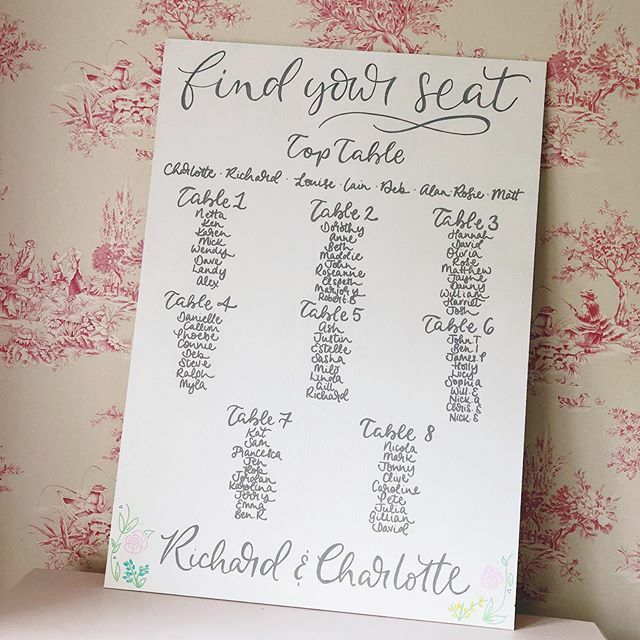 find your seat
Top Table
Charlotte · Richard · Louise · Iain · Deb · Alan · Rosie · Matt
Table 1
Netta
Ken
Karen
Mick
Wendy
Dave
Landy
Alex
Table 2
Dorothy
Anne
Beth
Maddie
John
Roseanne
Elspeth
Marjory
Robert S
Table 3
Hannah
David
Olivia
Rose
Matthew
Jayne
Danny
William
Harriet
Josh
Table 4
Danielle
Callum
Phoebe
Connie
Deb
Steve
Ralph
Myla
Table 5
Ash
Justin
Estelle
Sasha
Milo
Linda
Gill
Richard
Table 6
John T
Ben J
James P
Holly
Lucy
Sophia
Will E
Nick G
Chris S
Nick S
Table 7
Kat
Sam
Francesca
Jen
Rob
Jordan
Karolina
Jerry
Emma
Ben R
Table 8
Nicola
Mark
Jonny
Clive
Caroline
Pete
Julia
Gillian
David
Richard & Charlotte